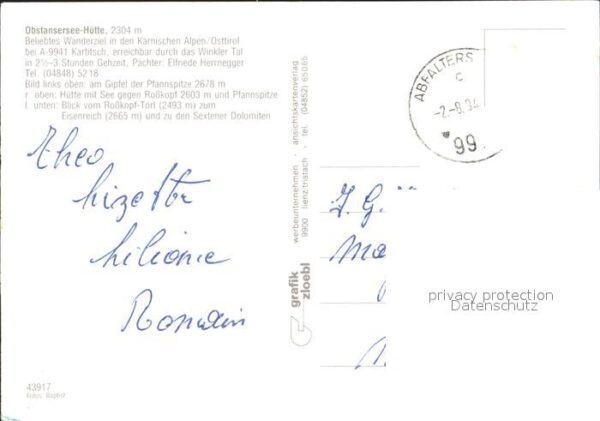 Obstansersee-Hütte, 2304 m
Beliebtes Wanderziel in den Karnischen Alpen/Osttirol
bei A-9941 Kartitsch, erreichbar durch das Winkler Tal
in 2½–3 Stunden Gehzeit, Pächter: Elfriede Herrnegger
Tel. (04848) 5218
Bild links oben: am Gipfel der Pfannspitze 2678 m
r. oben: Hütte mit See gegen Roßkopf 2603 m und Pfannspitze
l. unten: Blick vom Roßkopf-Törl (2493 m) zum
Eisenreich (2665 m) und zu den Sextener Dolomiten
Theo
Lizette
Liliane
Romain
43917
Fotos: Baptist
grafik
zloebl
werbeunternehmen · ansichtskartenverlag
9900 lienz/tristach · tel. (04852) 65065
ABFALTERS
c
-2.-8.94
99
J. G.
Ma
privacy protection
Datenschutz